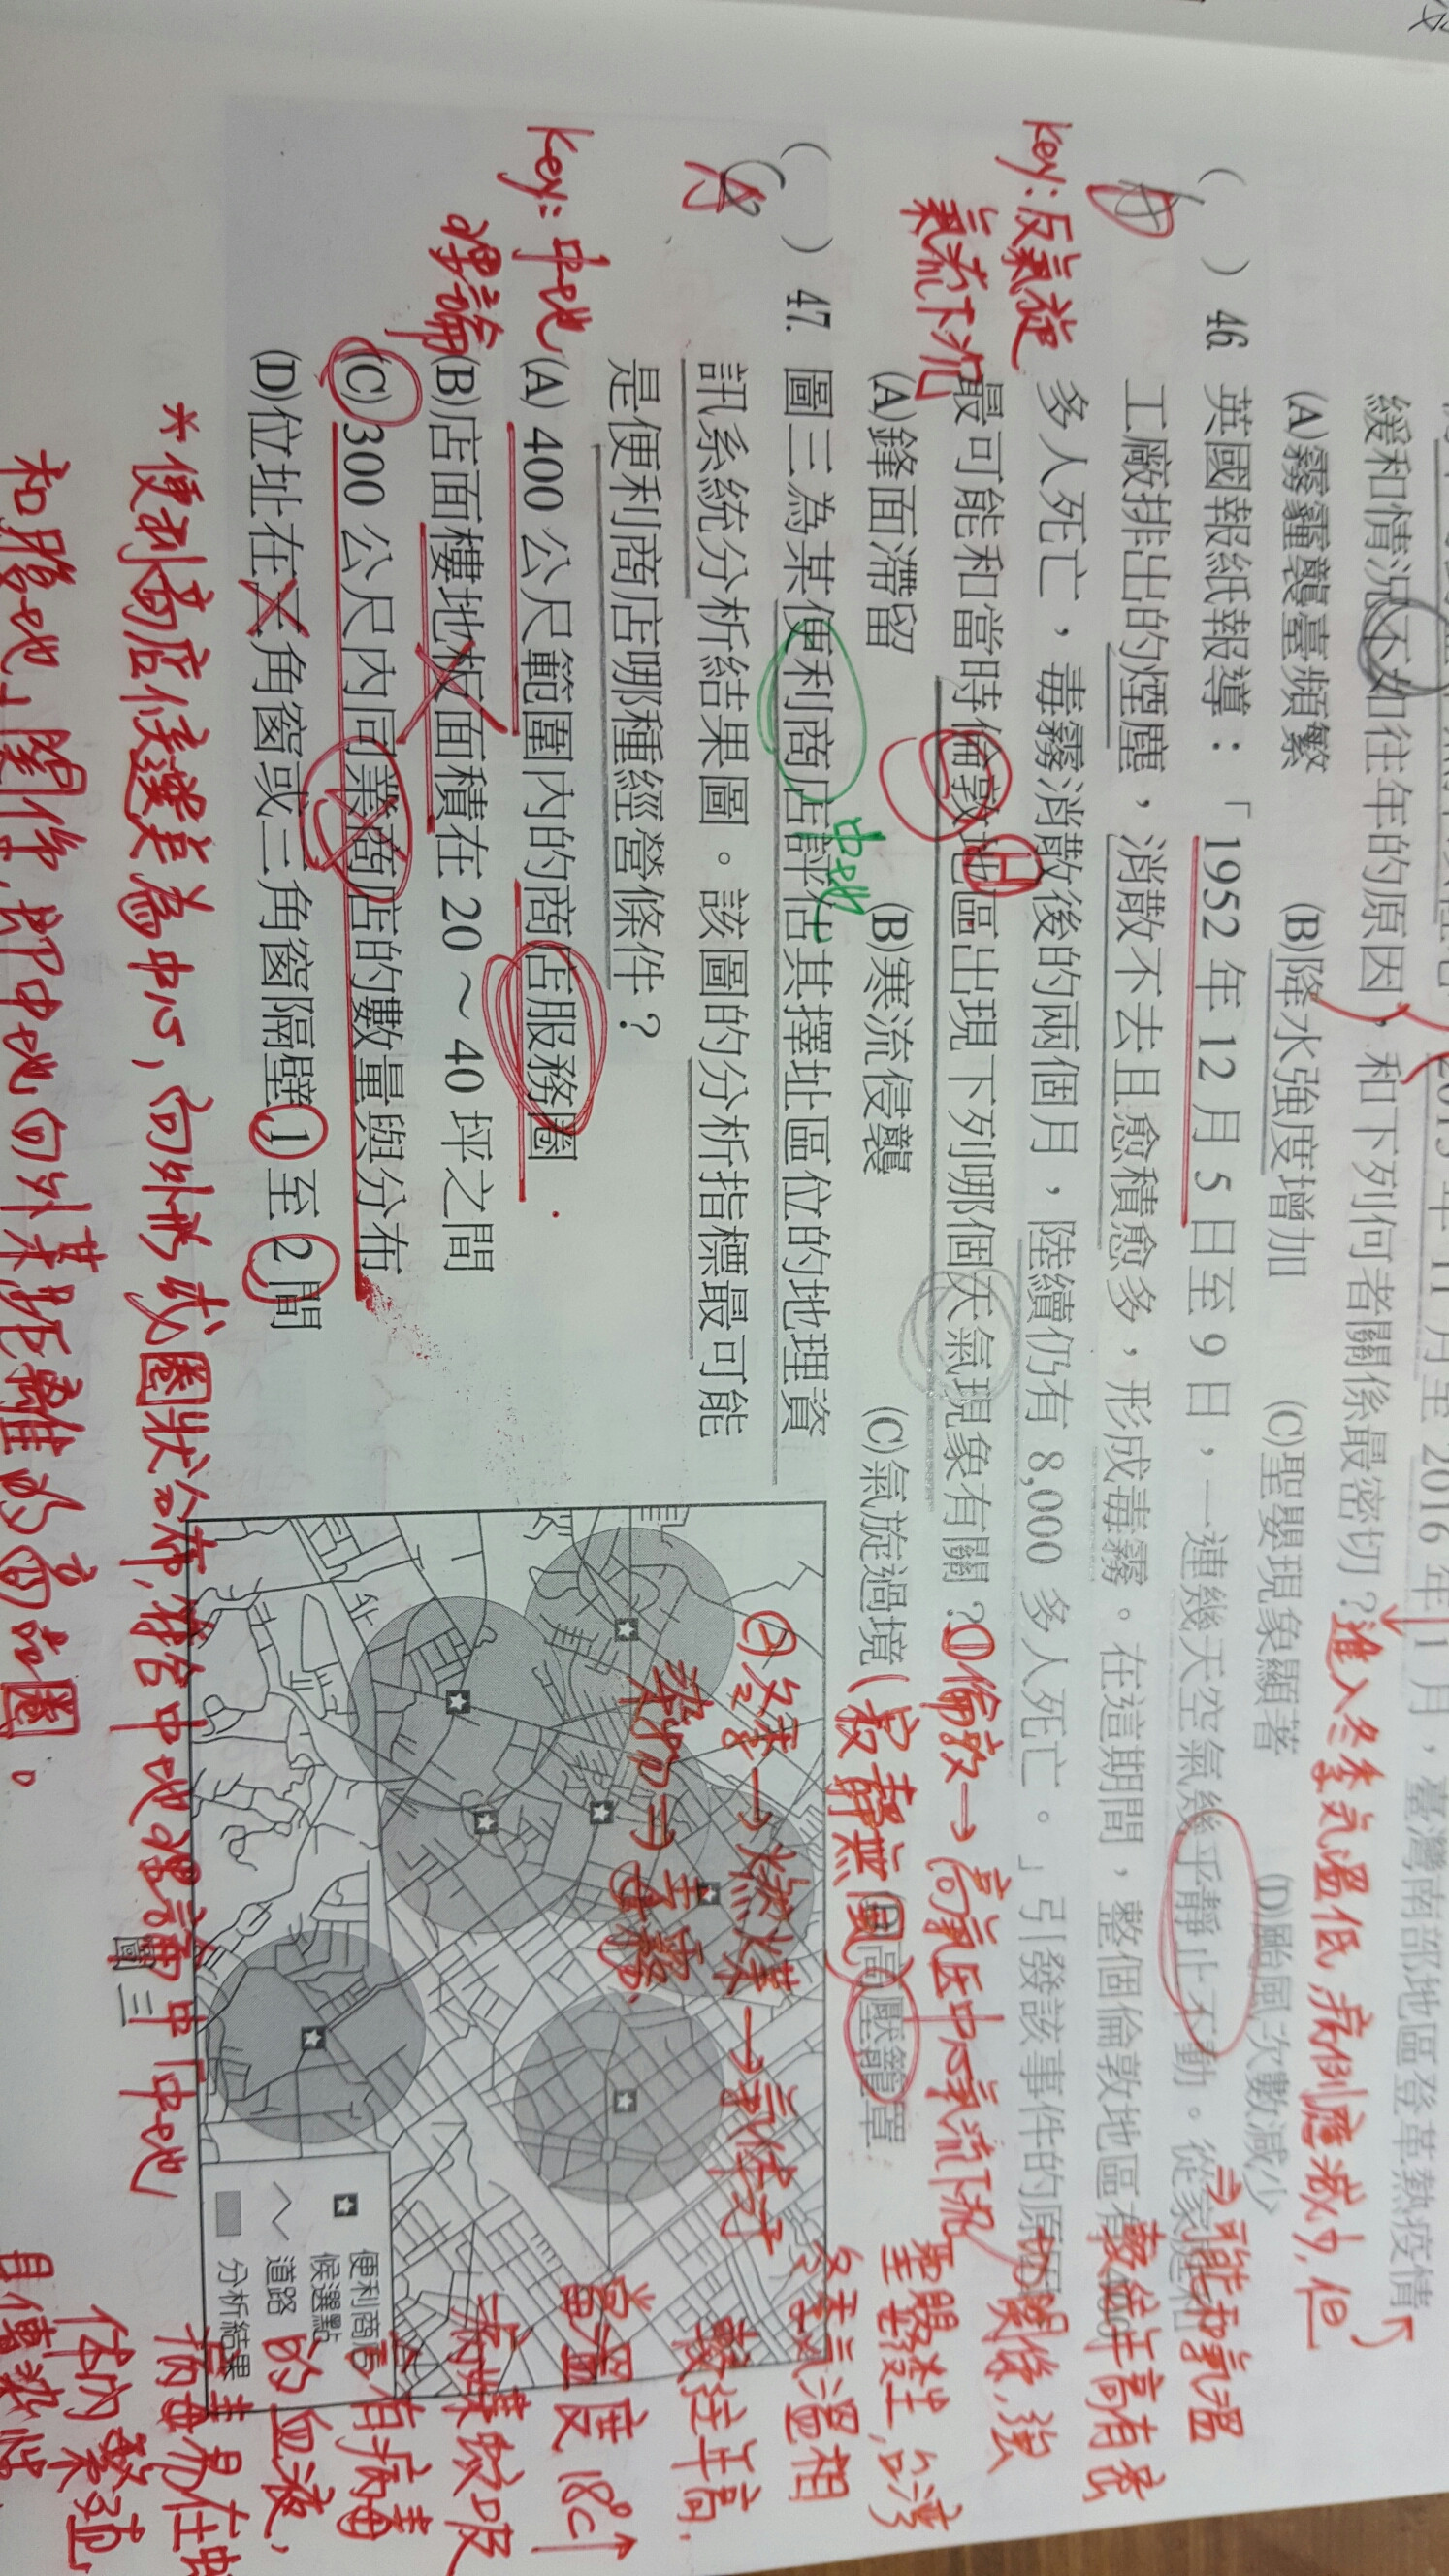 緩和情況不如往年的原因，和下列何者關係最密切？
(A)霧霾襲臺頻繁 (B)降水強度增加 (C)聖嬰現象顯著 (D)颱風次數減少
進入冬季氣溫低,病例應減少,但
( ) 46. 英國報紙報導：「1952 年 12 月 5 日至 9 日，一連幾天空氣幾乎靜止不動。從家庭和
工廠排出的煙塵，消散不去且愈積愈多，形成毒霧。在這期間，整個倫敦地區有
多人死亡，毒霧消散後的兩個月，陸續仍有 8,000 多人死亡。」引發該事件的原因
最可能和當時倫敦地區出現下列哪個天氣現象有關？
(A)鋒面滯留 (B)寒流侵襲 (C)氣旋過境 (D)高壓籠罩
key:反氣旋
氣流下沉
①倫敦→高氣壓中心氣流下沉
(最靜無風)
②冬季→燃煤→氣体汙
染物⇒毒霧
( ) 47. 圖三為某便利商店評估其擇址區位的地理資
訊系統分析結果圖。該圖的分析指標最可能
是便利商店哪種經營條件？
(A) 400 公尺範圍內的商店服務圈
(B)店面樓地板面積在 20～40 坪之間
(C) 300 公尺內同業商店的數量與分布
(D)位址在三角窗或三角窗隔壁 1 至 2 間
中地
key:中地
理論
便利商店
候選點
道路
分析結果
圖三
*便利商店候選美為中心,向外形成圈狀分布,符合中地理論中「中地
和腹地」關係,即中地向外某距離的商品圈。
可能和氣溫
較往年高有密
切關係,強
聖嬰發生,台灣
冬季氣溫相
較往年高,
當溫度18℃↑
病媒蚊吸
了有病毒
的血液,